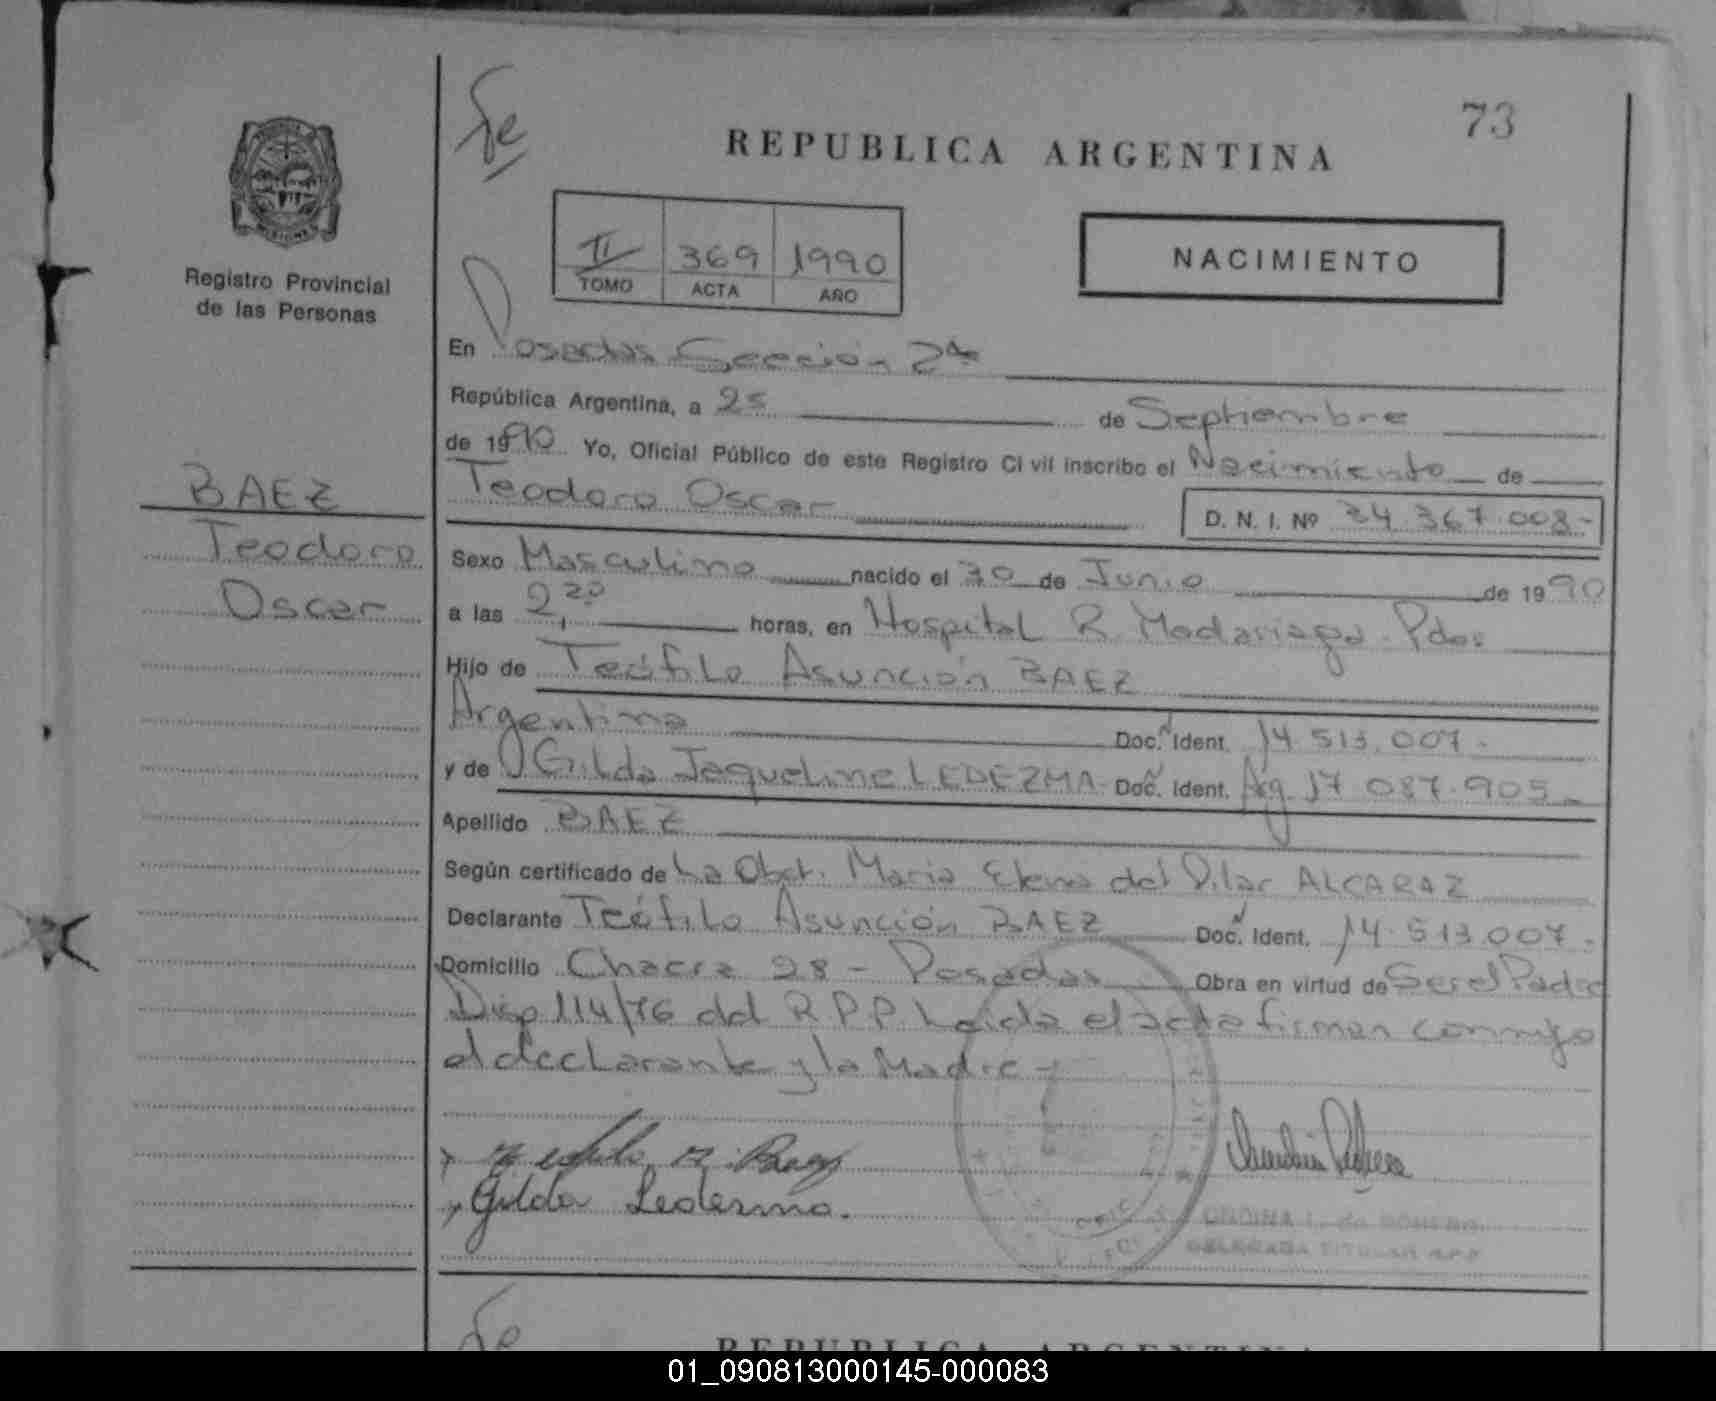 73
REPUBLICA ARGENTINA
MISIONES
Registro Provincial
de las Personas
II 369 1990
TOMO ACTA AÑO
NACIMIENTO
En Posadas Sección 2da
República Argentina, a 25 de Septiembre
de 1990 Yo, Oficial Público de este Registro Civil inscribo el Nacimiento de
Teodoro Oscar D. N. I. Nº 34.367.008-
BAEZ
Teodoro
Oscar
Sexo Masculino nacido el 30 de Junio de 1990
a las 2 horas, en Hospital R. Madariaga - Pdas.
Hijo de Teófilo Asunción BAEZ
Argentino Doc. Ident. 14.513.007-
y de Gilda Jaqueline LEDEZMA- Doc. Ident. Arg. 17.087.905-
Apellido BAEZ
Según certificado de La Obst. Maria Elena del Pilar ALCARAZ
Declarante Teófilo Asunción BAEZ Doc. Ident. 14.513.007-
Domicilio Chacra 28 - Posadas Obra en virtud de Ser el Padre
Disp 114/76 del R.P.P. Leida el acta firman conmigo
el declarante y la Madre-
Gilda Ledesma.
DELEGADA TITULAR R.P.P.
REPUBLICA ARGENTINA
01_090813000145-000083